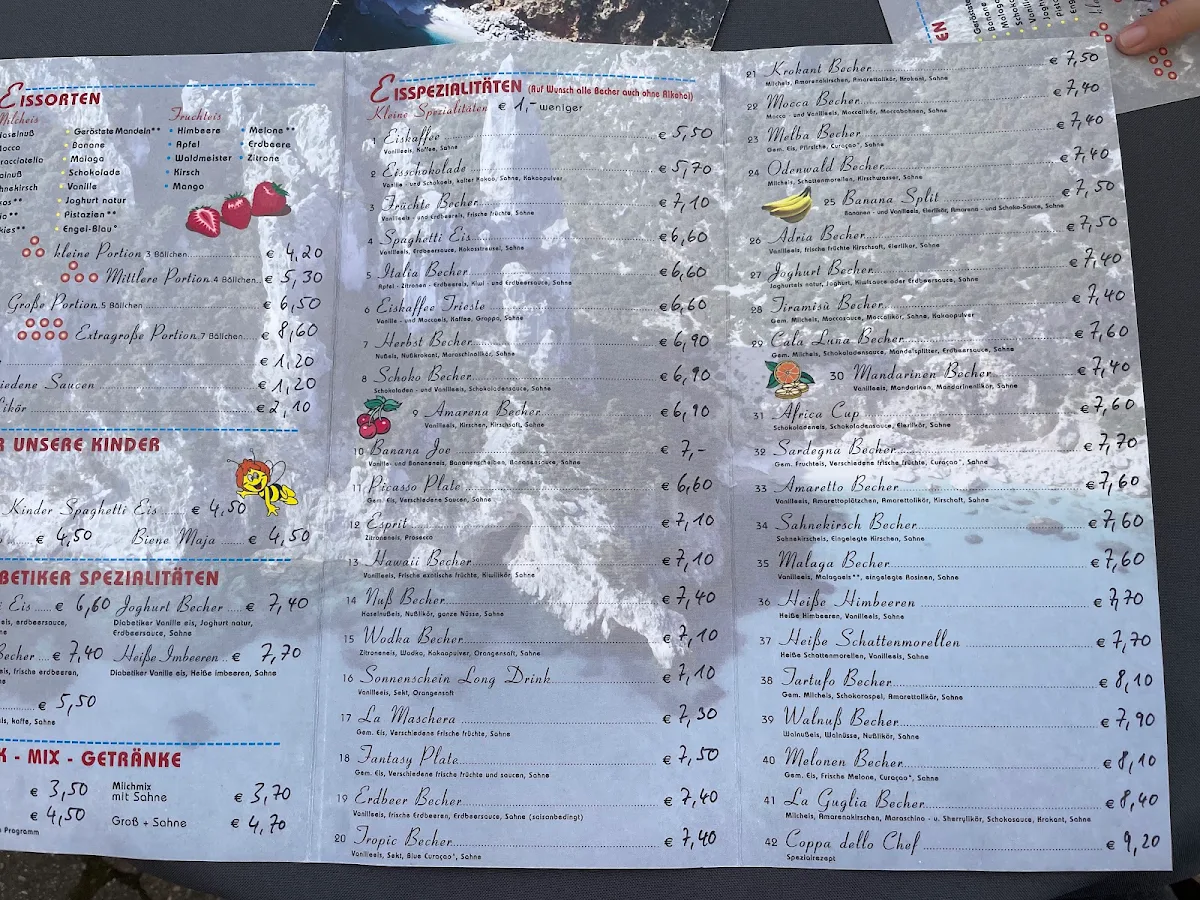 EISSORTEN
Milcheis
Fruchteis
Haselnuß
Geröstete Mandeln**
Himbeere
Melone**
Mocca
Banane
Apfel
Erdbeere
Malaga
Waldmeister
Zitrone
Schokolade
Kirsch
Vanille
Mango
Joghurt natur
Pistazien**
Engel-Blau°
kleine Portion 3 Bällchen € 4,20
Mittlere Portion 4 Bällchen € 5,30
Große Portion 5 Bällchen € 6,50
Extragroße Portion 7 Bällchen € 8,60
€ 1,20
Saucen € 1,20
€ 2,10
UNSERE KINDER
Kinder Spaghetti Eis € 4,50
€ 4,50 Biene Maja € 4,50
SPEZIALITÄTEN
Eis € 6,60 Joghurt Becher € 7,40
erdbeersauce, Diabetiker Vanille eis, Joghurt natur,
Erdbeersauce, Sahne
Becher € 7,40 Heiße Imbeeren € 7,70
frische erdbeeren, Diabetiker Vanille eis, Heiße imbeeren, Sahne
€ 5,50
kaffe, Sahne
- MIX - GETRÄNKE
€ 3,50 Milchmix
mit Sahne € 3,70
€ 4,50 Groß + Sahne € 4,70
Programm
EISSPEZIALITÄTEN (Auf Wunsch alle Becher auch ohne Alkohol)
Kleine Spezialitäten € 1,- weniger
1 Eiskaffee € 5,50
Vanilleeis, Kaffee, Sahne
2 Eisschokolade € 5,70
Vanille - und Schokoeis, kalter Kakao, Sahne, Kakaopulver
3 Früchte Becher € 7,10
Vanilleeis - und Erdbeereis, Frische früchte, Sahne
4 Spaghetti Eis € 6,60
Vanilleeis, Erdbeersauce, Kokosstreusel, Sahne
5 Italia Becher € 6,60
Apfel - Zitronen - Erdbeereis, Kiwi - und Erdbeersauce, Sahne
6 Eiskaffee Trieste € 6,60
Vanille - und Moccaeis, Kaffee, Grappa, Sahne
7 Herbst Becher € 6,90
Nußeis, Nußkrokant, Maraschinolikör, Sahne
8 Schoko Becher € 6,90
Schokoladen - und Vanilleeis, Schokoladensauce, Sahne
9 Amarena Becher € 6,90
Vanilleeis, Kirschen, Kirschsaft, Sahne
10 Banana Joe € 7,-
Vanille - und Bananeneis, Bananenscheiben, Bananensauce, Sahne
11 Picasso Plate € 6,60
Gem. Eis, Verschiedene Saucen, Sahne
12 Esprit € 7,10
Zitroneneis, Prosecco
13 Hawaii Becher € 7,10
Vanilleeis, Frische exotische früchte, Kiwilikör, Sahne
14 Nuß Becher € 7,40
Haselnußeis, Nußlikör, ganze Nüsse, Sahne
15 Wodka Becher € 7,10
Zitroneneis, Wodka, Kakaopulver, Orangensaft, Sahne
16 Sonnenschein Long Drink € 7,10
Vanilleeis, Sekt, Orangensaft
17 La Maschera € 7,30
Gem. Eis, Verschiedene frische früchte, Sahne
18 Fantasy Plate € 7,50
Gem. Eis, Verschiedene frische früchte und saucen, Sahne
19 Erdbeer Becher € 7,40
Vanilleeis, frische Erdbeeren, Erdbeersauce, Sahne (saisonbedingt)
20 Tropic Becher € 7,40
Vanilleeis, Sekt, Blue Curaçao°, Sahne
21 Krokant Becher € 7,50
Milcheis, Amarenakirschen, Amarettolikör, Krokant, Sahne
22 Mocca Becher € 7,40
Mocca - und Vanilleeis, Moccalikör, Moccabohnen, Sahne
23 Melba Becher € 7,40
Gem. Eis, Pfirsiche, Curaçao°, Sahne
24 Odenwald Becher € 7,40
Milcheis, Schattenmorellen, Kirschwasser, Sahne
25 Banana Split € 7,50
Bananen - und Vanilleeis, Eierlikör, Amarena - und Schoko-Sauce, Sahne
26 Adria Becher € 7,50
Vanilleeis, frische früchte Kirschsaft, Eierlikör, Sahne
27 Joghurt Becher € 7,40
Joghurteis natur, Joghurt, Kiwisauce oder Erdbeersauce, Sahne
28 Tiramisù Becher € 7,40
Gem. Milcheis, Moccasauce, Moccalikör, Sahne, Kakaopulver
29 Cala Luna Becher € 7,60
Gem. Milcheis, Schokoladensauce, Mandelsplitter, Erdbeersauce, Sahne
30 Mandarinen Becher € 7,40
Vanilleeis, Mandarinen, Mandarinenlikör, Sahne
31 Africa Cup € 7,60
Schokoladeneis, Schokoladensauce, Eierlikör, Sahne
32 Sardegna Becher € 7,70
Gem. Fruchteis, Verschiedene frische früchte, Curaçao°, Sahne
33 Amaretto Becher € 7,60
Vanilleeis, Amarettoplätzchen, Amarettolikör, Kirschsaft, Sahne
34 Sahnekirsch Becher € 7,60
Sahnekirscheis, Eingelegte Kirschen, Sahne
35 Malaga Becher € 7,60
Vanilleeis, Malagaeis**, eingelegte Rosinen, Sahne
36 Heiße Himbeeren € 7,70
Heiße Himbeeren, Vanilleeis, Sahne
37 Heiße Schattenmorellen € 7,70
Heiße Schattenmorellen, Vanilleeis, Sahne
38 Tartufo Becher € 8,10
Gem. Milcheis, Schokoraspel, Amarettolikör, Sahne
39 Walnuß Becher € 7,90
Walnußeis, Walnüsse, Nußlikör, Sahne
40 Melonen Becher € 8,10
Gem. Eis, Frische Melone, Curaçao°, Sahne
41 La Guglia Becher € 8,40
Milcheis, Amarenakirschen, Maraschino - u. Sherrylikör, Schokosauce, Krokant, Sahne
42 Coppa dello Chef € 9,20
Spezialrezept